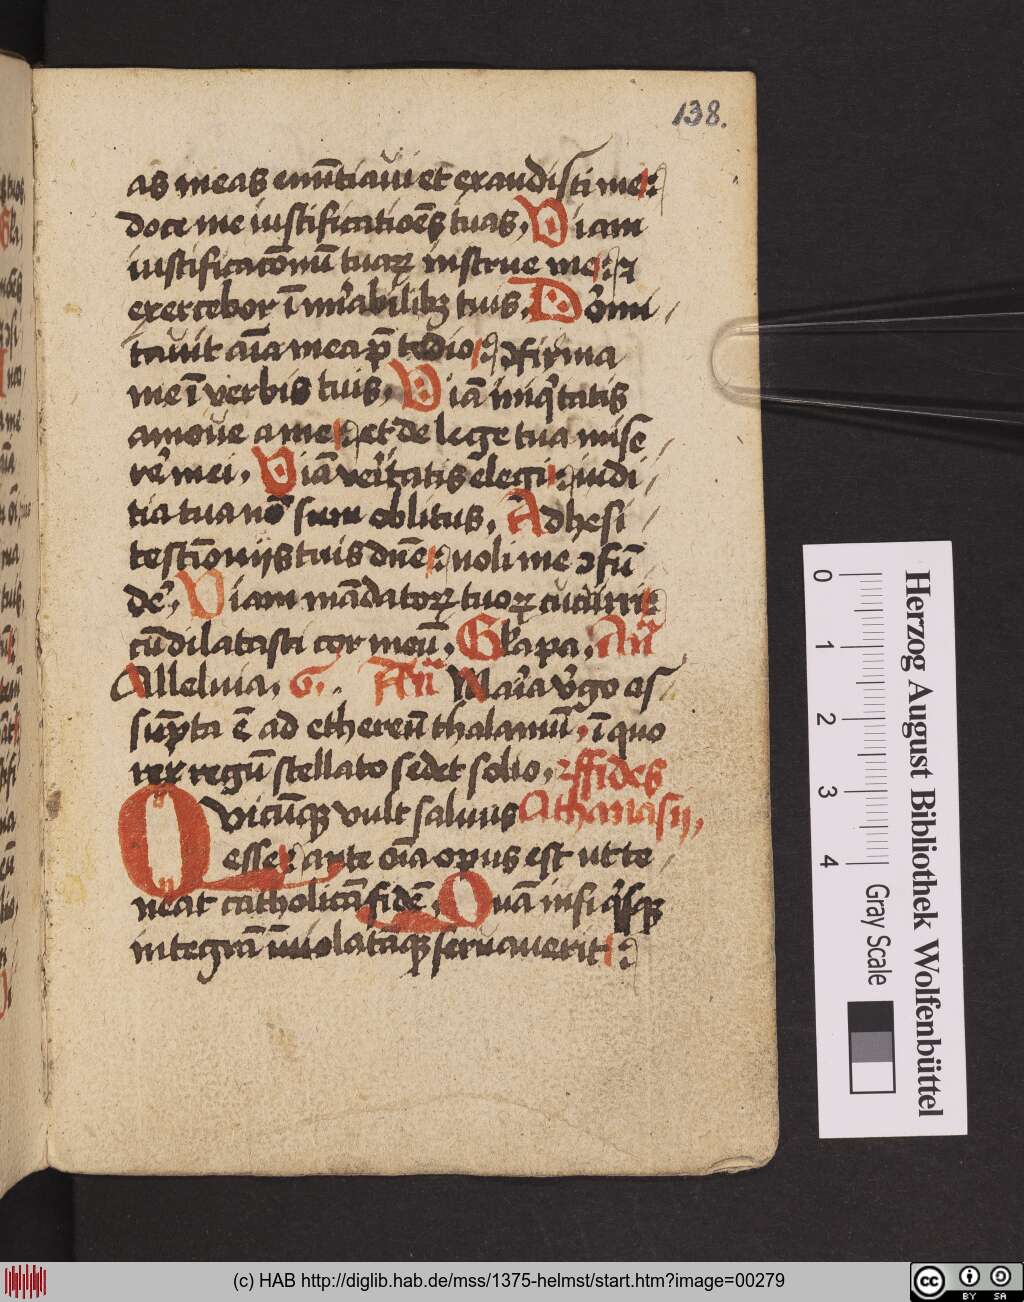 138.
as meas enūtiaui et exaudisti me:
doce me iustificatiōēs tuas, Viam
iustificacōnū tuaꝝ instrue me: ⁊
exercebor ī mi̓abilibꝫ tuis, Do̓mi
tauit aīa mea p̄ tedio: ꝯfirma
me ī verbis tuis, Viā iniqͥtatis
amoue a me: et de lege tua mise
re̓ mei, Viā veri̓tatis elegi: iudi
tia tua nō sum oblitus, Adhesi
testīonijs tuis dn̄e: noli me ꝯfū
de̓, Viam mādatoꝝ tuoꝝ cucurri:
cū dilatasti cor meū, Gl̓a pa, An̄
Alleluia, G. An̄ Mari̓a v̓go as
sūpta ē ad ethereū thalamū, ī quo
rex regū stellato sedet solio, ffides
Quicūqꝫ vult saluus Athanasij,
esse: ante oīa opus est ut te
neat catholicā fidē, Quā nisi qͥsqꝫ
integrā īuiolatāqꝫ seruauerit:
0 1 2 3 4
Herzog August Bibliothek Wolfenbüttel
Gray Scale
(c) HAB http://diglib.hab.de/mss/1375-helmst/start.htm?image=00279
cc BY SA